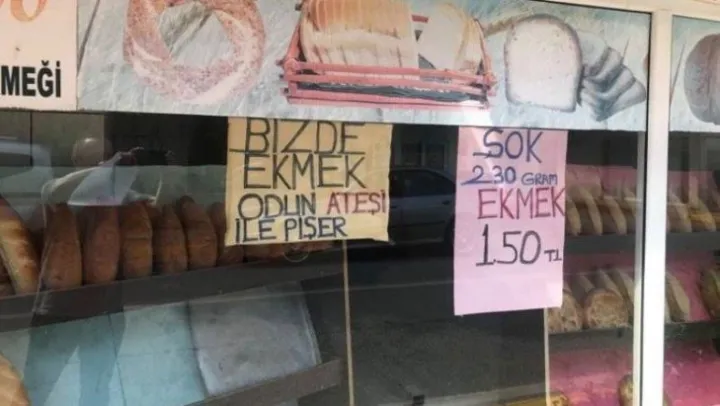 MEĞİ
BİZDE
EKMEK
ODUN ATEŞİ
İLE PİŞER
ŞOK
230 GRAM
EKMEK
1.50 TL